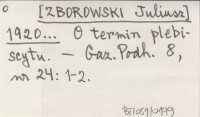 [ZBOROWSKI Juliusz]
1920... O termin plebi-
scytu. – Gaz. Podh. 8,
nr 24: 1-2.